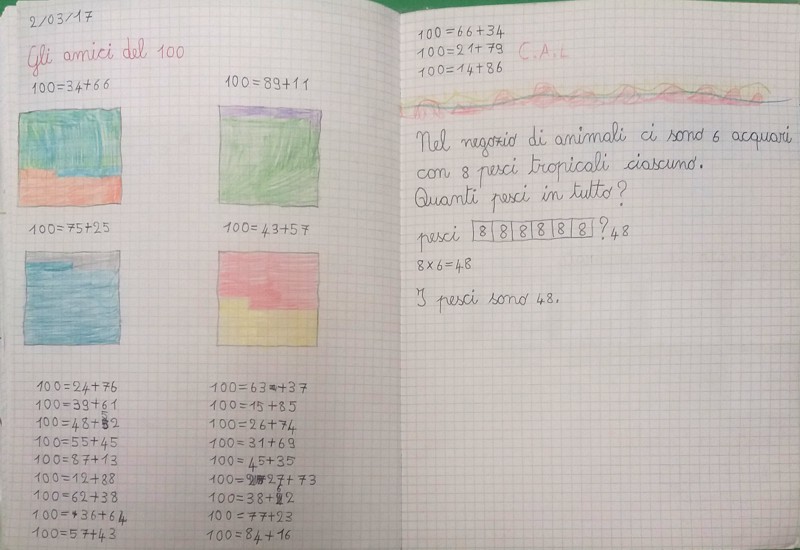 2/03/17
Gli amici del 100
100=34+66
100=89+11
100=75+25
100=43+57
100=24+76
100=39+61
100=48+52
100=55+45
100=87+13
100=12+88
100=62+38
100=36+64
100=57+43
100=63+37
100=15+85
100=26+74
100=31+69
100=45+35
100=27+73
100=38+62
100=77+23
100=84+16
100=66+34
100=21+79
100=14+86
C.A.L
Nel negozio di animali ci sono 6 acquari
con 8 pesci tropicali ciascuno.
Quanti pesci in tutto?
pesci 8 8 8 8 8 8 ? 48
8×6=48
I pesci sono 48.